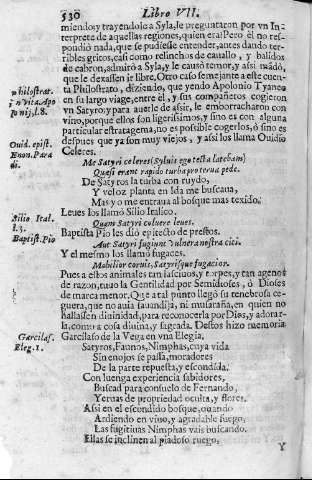 530 Libro VII.
miendo; y trayendole a Syla, le preguntaron por vn In-
terprete de aquellas regiones, quien era? Pero èl no res-
pondiò nada, que se pudiesse entender, antes dando ter-
ribles gritos, casi como relinchos de cauallo, y balidos
de cabron, admirò a Syla, y le causò temor, y assi mãdò,
que le dexassen ir libre, Otro caso semejante a este cuen-
ta Philostrato, diziendo, que yendo Apolonio Tyaneo
en su largo viage, entre èl, y sus compañeros cogieron
vn Satyro; y para auerle de assir, le emborracharon con
vino, porque ellos son ligerissimos, y sino es con alguna
particular estratagema, no es possible cogerlos, ò sino es
despues que ya son muy viejos, y assi los llama Ouidio
Celeres.
Philostrat.
in vita Apo
lonij, l. 8.
Ouid. epist.
Enon. Para
di.
Me Satyri celeres (Syluis ego tecta latebam)
Quæsi erant rapido turba proterua pede.
De Satyros la turba con ruydo,
Y veloz planta en Ida me buscaua,
Mas yo me entraua al bosque mas texido.
Leues los llamò Silio Italico.
Silio Ital.
l. 3.
Baptist. Pio
Quam Satyri coluere leues.
Baptista Pio les diò epitecto de prestos.
Aut Satyri fugiunt vulnera nostra cici.
Y el mesmo los llamò fugaces.
Mobilior coruis, Satyrisque fugacior.
Pues a estos animales tan lasciuos, y torpes, y tan agenos
de razon, tuuo la Gentilidad por Semidioses, ò Dioses
de marca menor, Que a tal punto llegò su tenebrosa ce-
guera, que no auia sauandija, ni musaraña, en quien no
hallassen diuinidad, para reconocerla por Dios, y adorar-
la, como a cosa diuina, y sagrada. Destos hizo memoria
Garcilaso de la Vega en vna Elegia,
Garcilas.
Eleg. 1.
Satyros, Faunos, Nimphas, cuya vida
Sin enojos se passa, moradores
De la parte repuesta, y escondida.
Con luenga experiencia sabidores,
Buscad para consuelo de Fernando,
Yeruas de propriedad oculta, y flores.
Assi en el escondido bosque, quando
Ardiendo en viuo, y agradable fuego,
Las fugitiuas Nimphas vais buscando.
Ellas se inclinen al piadoso ruego,
Y